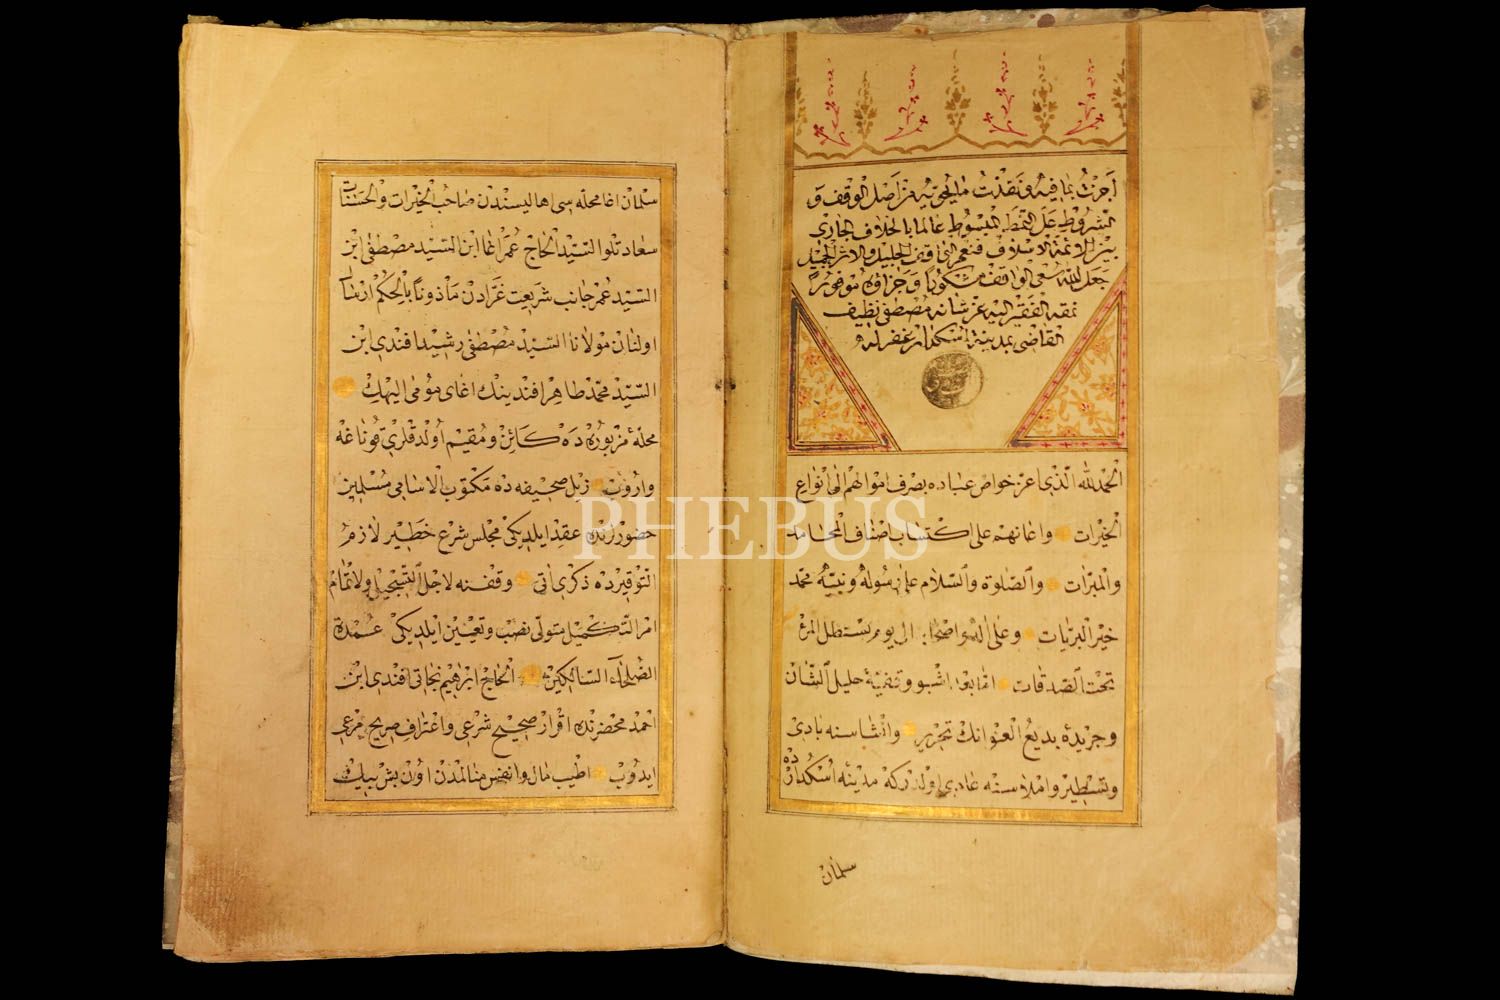 أجزت بما فيه ونفذت ما يحويه من أصل الوقف و
الشروط على النمط المبسوط عالما بالخلاف الجاري
بين الأئمة الأسلاف فنعم الواقف الجليل والأثر الجميل
جعل الله سعي الواقف مشكورا وجزاؤه موفورا
نمقه الفقير إليه عز شانه مصطفى نظيف
القاضي بمدينة أسكدار غفر له
الحمد لله الذي خواص عباده بصرف اموالهم الى أنواع
الخيرات واعانهم على اكتساب اصناف المحامد
والمبرات والصلوة والسلام على رسوله ونبيه محمد
خير البريات وعلى اله واصحابه الى يوم يستظل المرء
تحت الصدقات اما بعد اشبو وقفية جليل الشان
وجريدۀ بديع العنوانك تحرير وانشاسنه بادى
وتسطير واملاسنه عادى اولدركه مدينه اسكدارده
سلمان
سلمان اغا محله سى اهاليسندن صاحب الخيرات والحسنات
سعادتلو السيد الحاج عمر اغا ابن السيد مصطفى ابن
السيد عمر جانب شريعت غرادن مأذونا بالحكم ارسال
اولنان مولانا السيد مصطفى رشيد افندى ابن
السيد محمد طاهر افندينك اغاى مومى اليهك
محلۀ مزبوره ده كائن ومقيم اولدقلرى قوناغه
واروب ذيل صحيفه ده مكتوب الاسامى مسلمين
حضورلرنده عقد ايلديكى مجلس شرع خطير لازم
التوقيرده ذكرى آتى وقفنه لاجل التسجيل ولاتمام
امر التكميل متولى نصب وتعيين ايلديكى عمدة
الصلحاء السالكين الحاج ابراهيم نجاتى افندى ابن
احمد محضرنده اقرار صحيح شرعى واعتراف صريح مرعى
ايدوب اطيب مال وانفس منالمدن اون بش بيك
PHEBUS